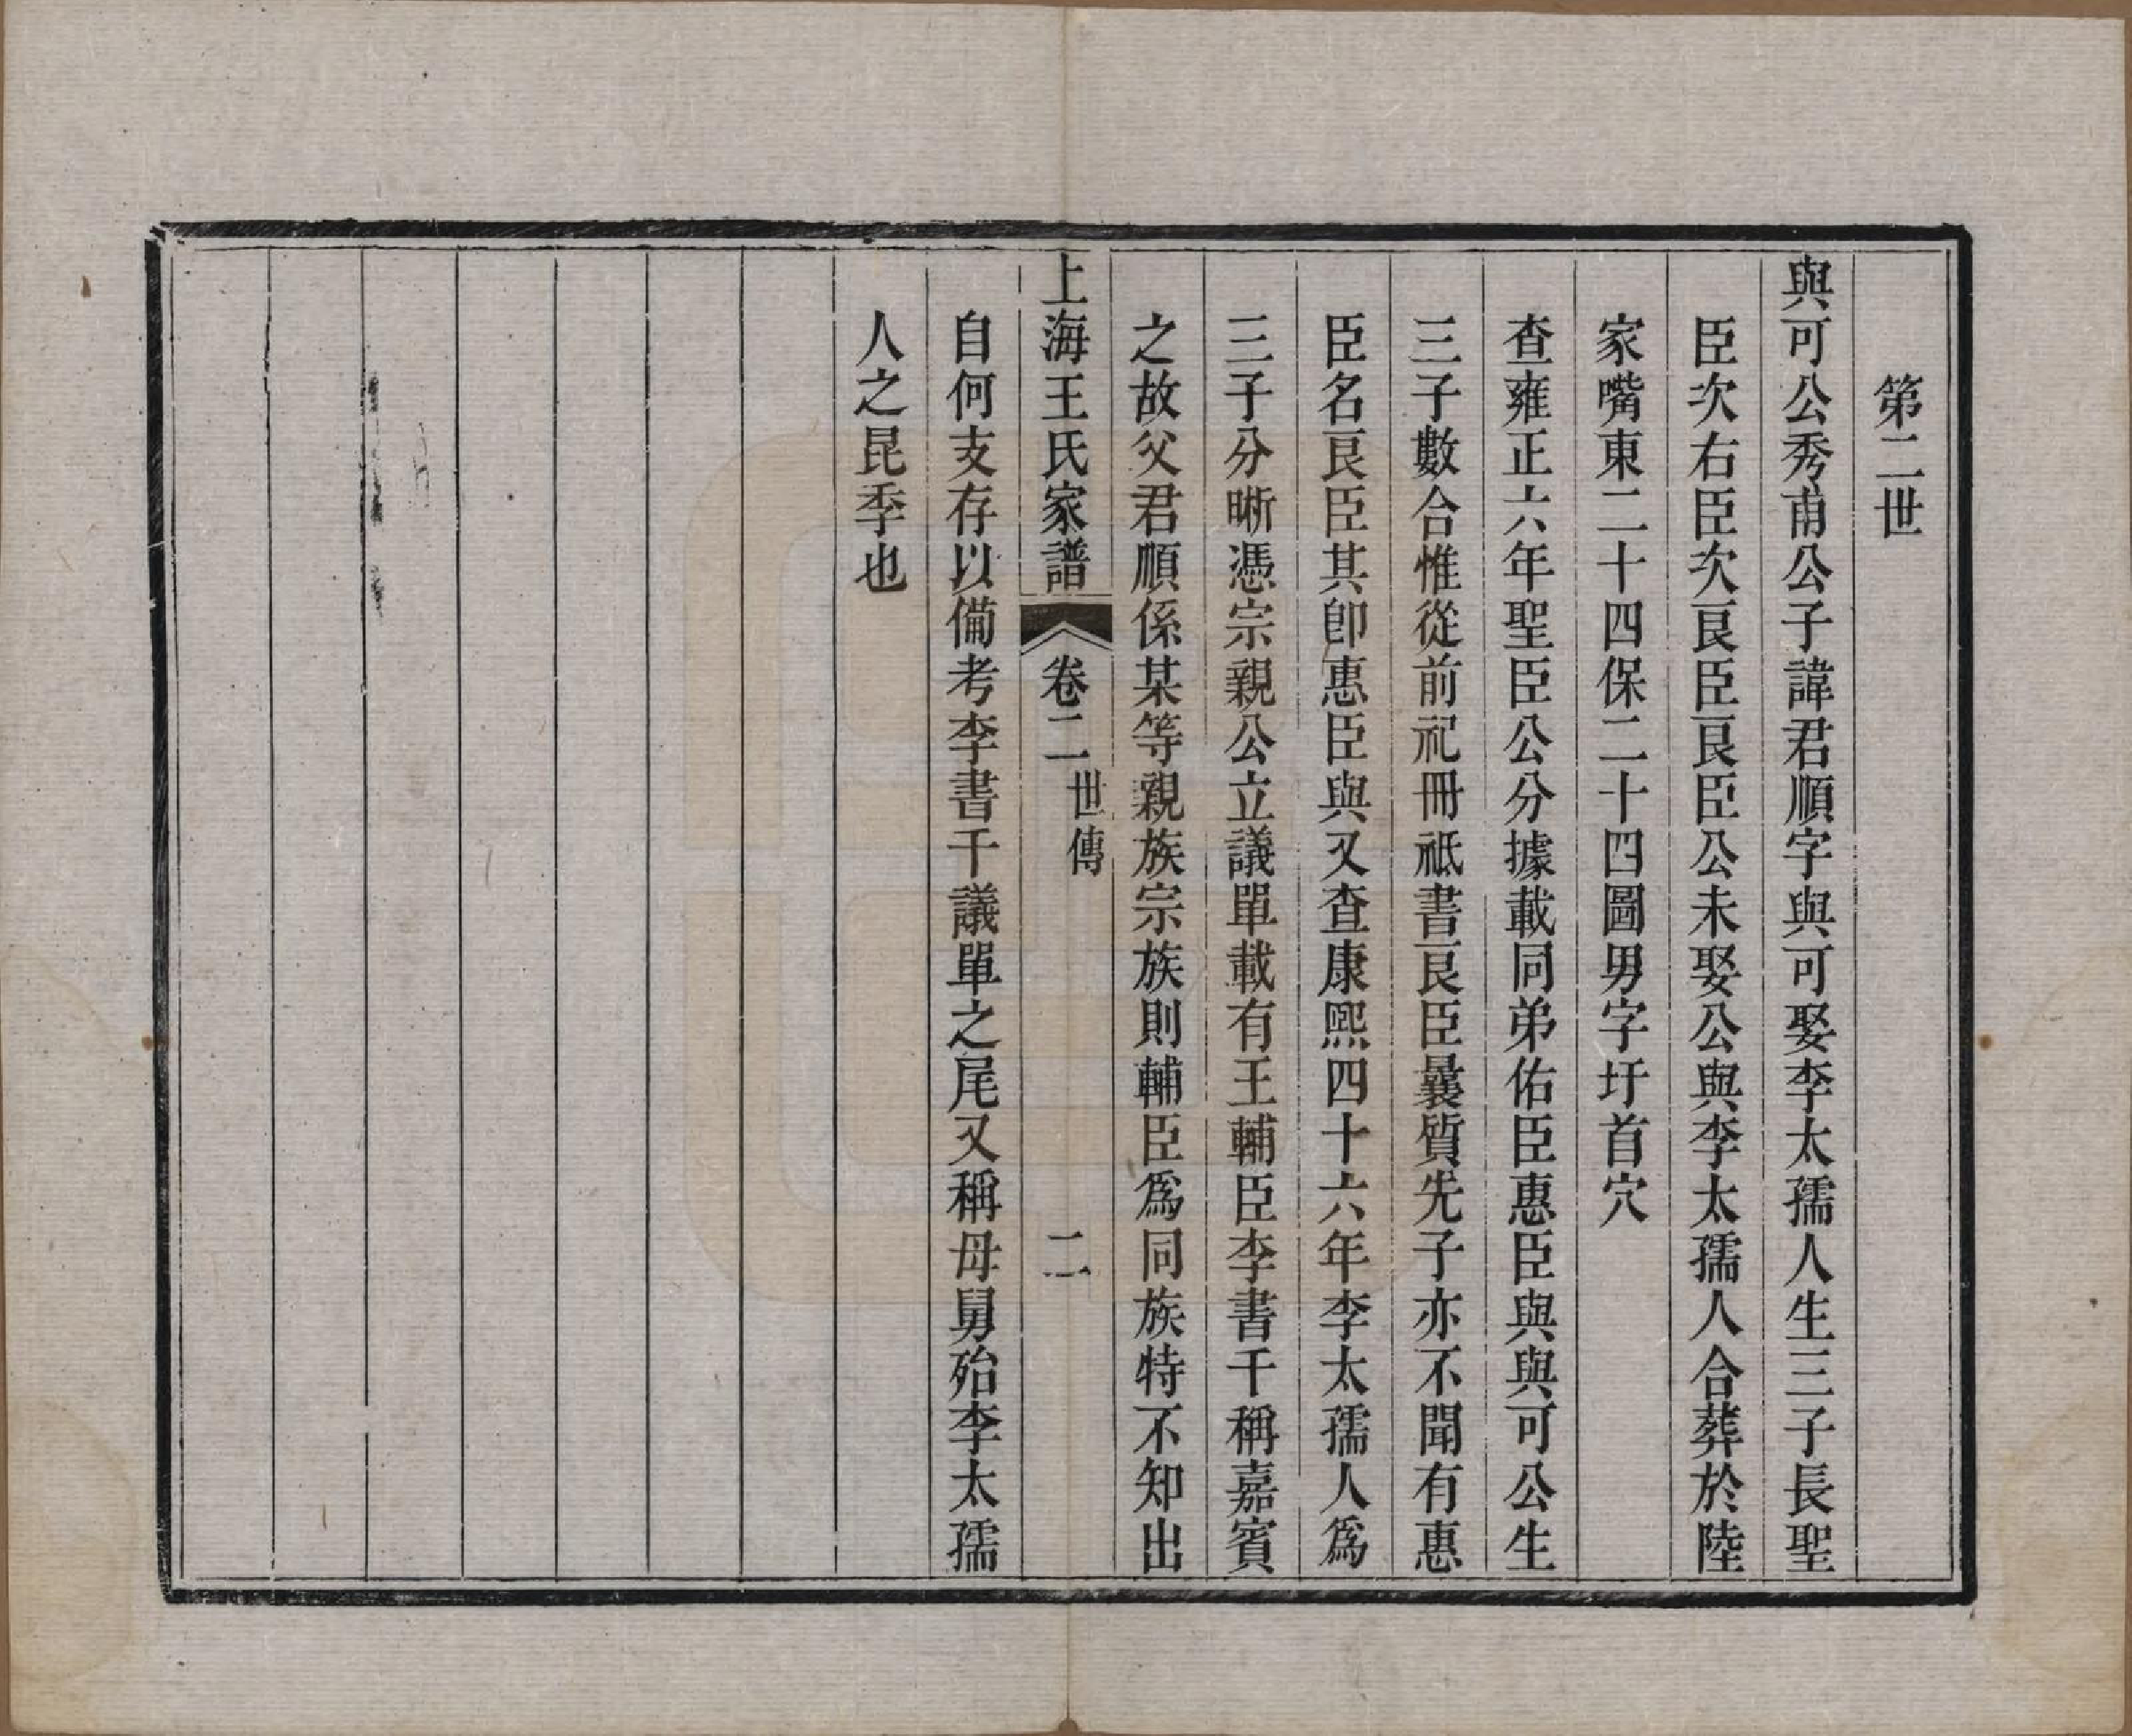 第二世
與可公秀甫公子諱君順字與可娶李太孺人生三子長聖
臣次右臣次良臣良臣公未娶公與李太孺人合葬於陸
家嘴東二十四保二十四圖男字圩首穴
查雍正六年聖臣公分據載同弟佑臣惠臣與與可公生
三子數合惟從前祀冊祗書良臣曩質先子亦不聞有惠
臣名良臣其卽惠臣與又查康熙四十六年李太孺人爲
三子分晰憑宗親公立議單載有王輔臣李書千稱嘉賓
之故父君順係某等親族宗族則輔臣爲同族特不知出
上海王氏家譜 卷二 世傳 二
自何支存以備考李書千議單之尾又稱母舅殆李太孺
人之昆季也